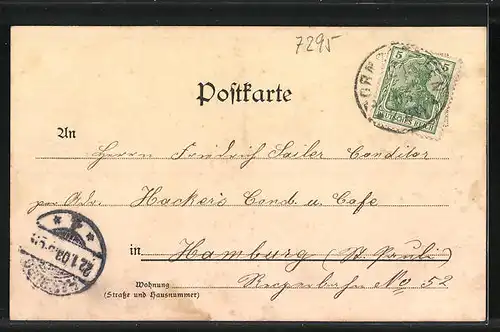 7295
5 5
Postkarte
An
Herrn Friedrich Sailer Conditor
per Adr. Hacker's Cond. u. Cafe
in Hamburg (St. Pauli)
Wohnung
(Straße und Hausnummer)
Reeperbahn No 52
22.1.00